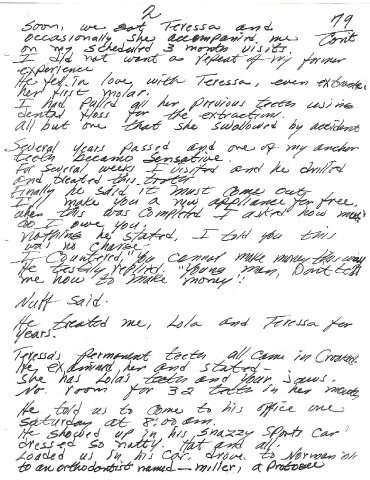 2
79
Cont
Soon, we got Teressa and
occasionally she accompanied me
on my scheduled 3 month visits.
I did not want a repeat of my former
experience
He fell in love with Teressa, even extracted
her first molar.
I had pulled all her previous teeth using
dental floss for the extraction.
All but one that she swallowed by accident
Several years passed and one of my anchor
teeth became sensative.
For several weeks I visited and he drilled
and treated this tooth
Finally he said it must come out,
I'll make you a new appliance for free.
when this was completed I asked how much
do I owe you,
nothing he stated, I told you this
was no charge.
I countered, "You cannot make money this way
He tersely replied. "Young man, Don't tell
me how to make money".
Nuff said.
He treated me, Lola and Teressa for
years.
Teressa's permanent teeth all came in Crooked.
He examined her and stated—
She has Lola's teeth and your jaws.
No room for 32 teeth in her mouth,
He told us to come to his office one
Saturday at 8:00 am.
He showed up in his snazzy Sports Car
dressed so natty. Hat and all.
Loaded us in his car, drove to Norman OK
to an orthodontist named — miller, a protoge